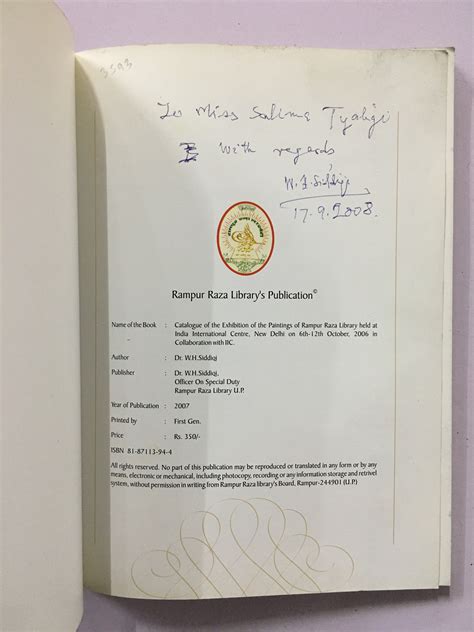 3593
To Miss Salima Tyahgi
With regards
W.H.Siddiqi
17.9.2008.
Rampur Raza Library's Publication©
Name of the Book : Catalogue of the Exhibition of the Paintings of Rampur Raza Library held at
India International Centre, New Delhi on 6th-12th October, 2006 in
Collaboration with IIC.
Author : Dr. W.H.Siddiqi
Publisher : Dr. W.H.Siddiqi,
Officer On Special Duty
Rampur Raza Library U.P.
Year of Publication : 2007
Printed by : First Gen.
Price : Rs. 350/-
ISBN 81-87113-94-4
All rights reserved. No part of this publication may be reproduced or translated in any form or by any
means, electronic or mechanical, including photocopy, recording or any information storage and retrivel
system, without permission in writing from Rampur Raza library's Board, Rampur-244901 (U.P.)